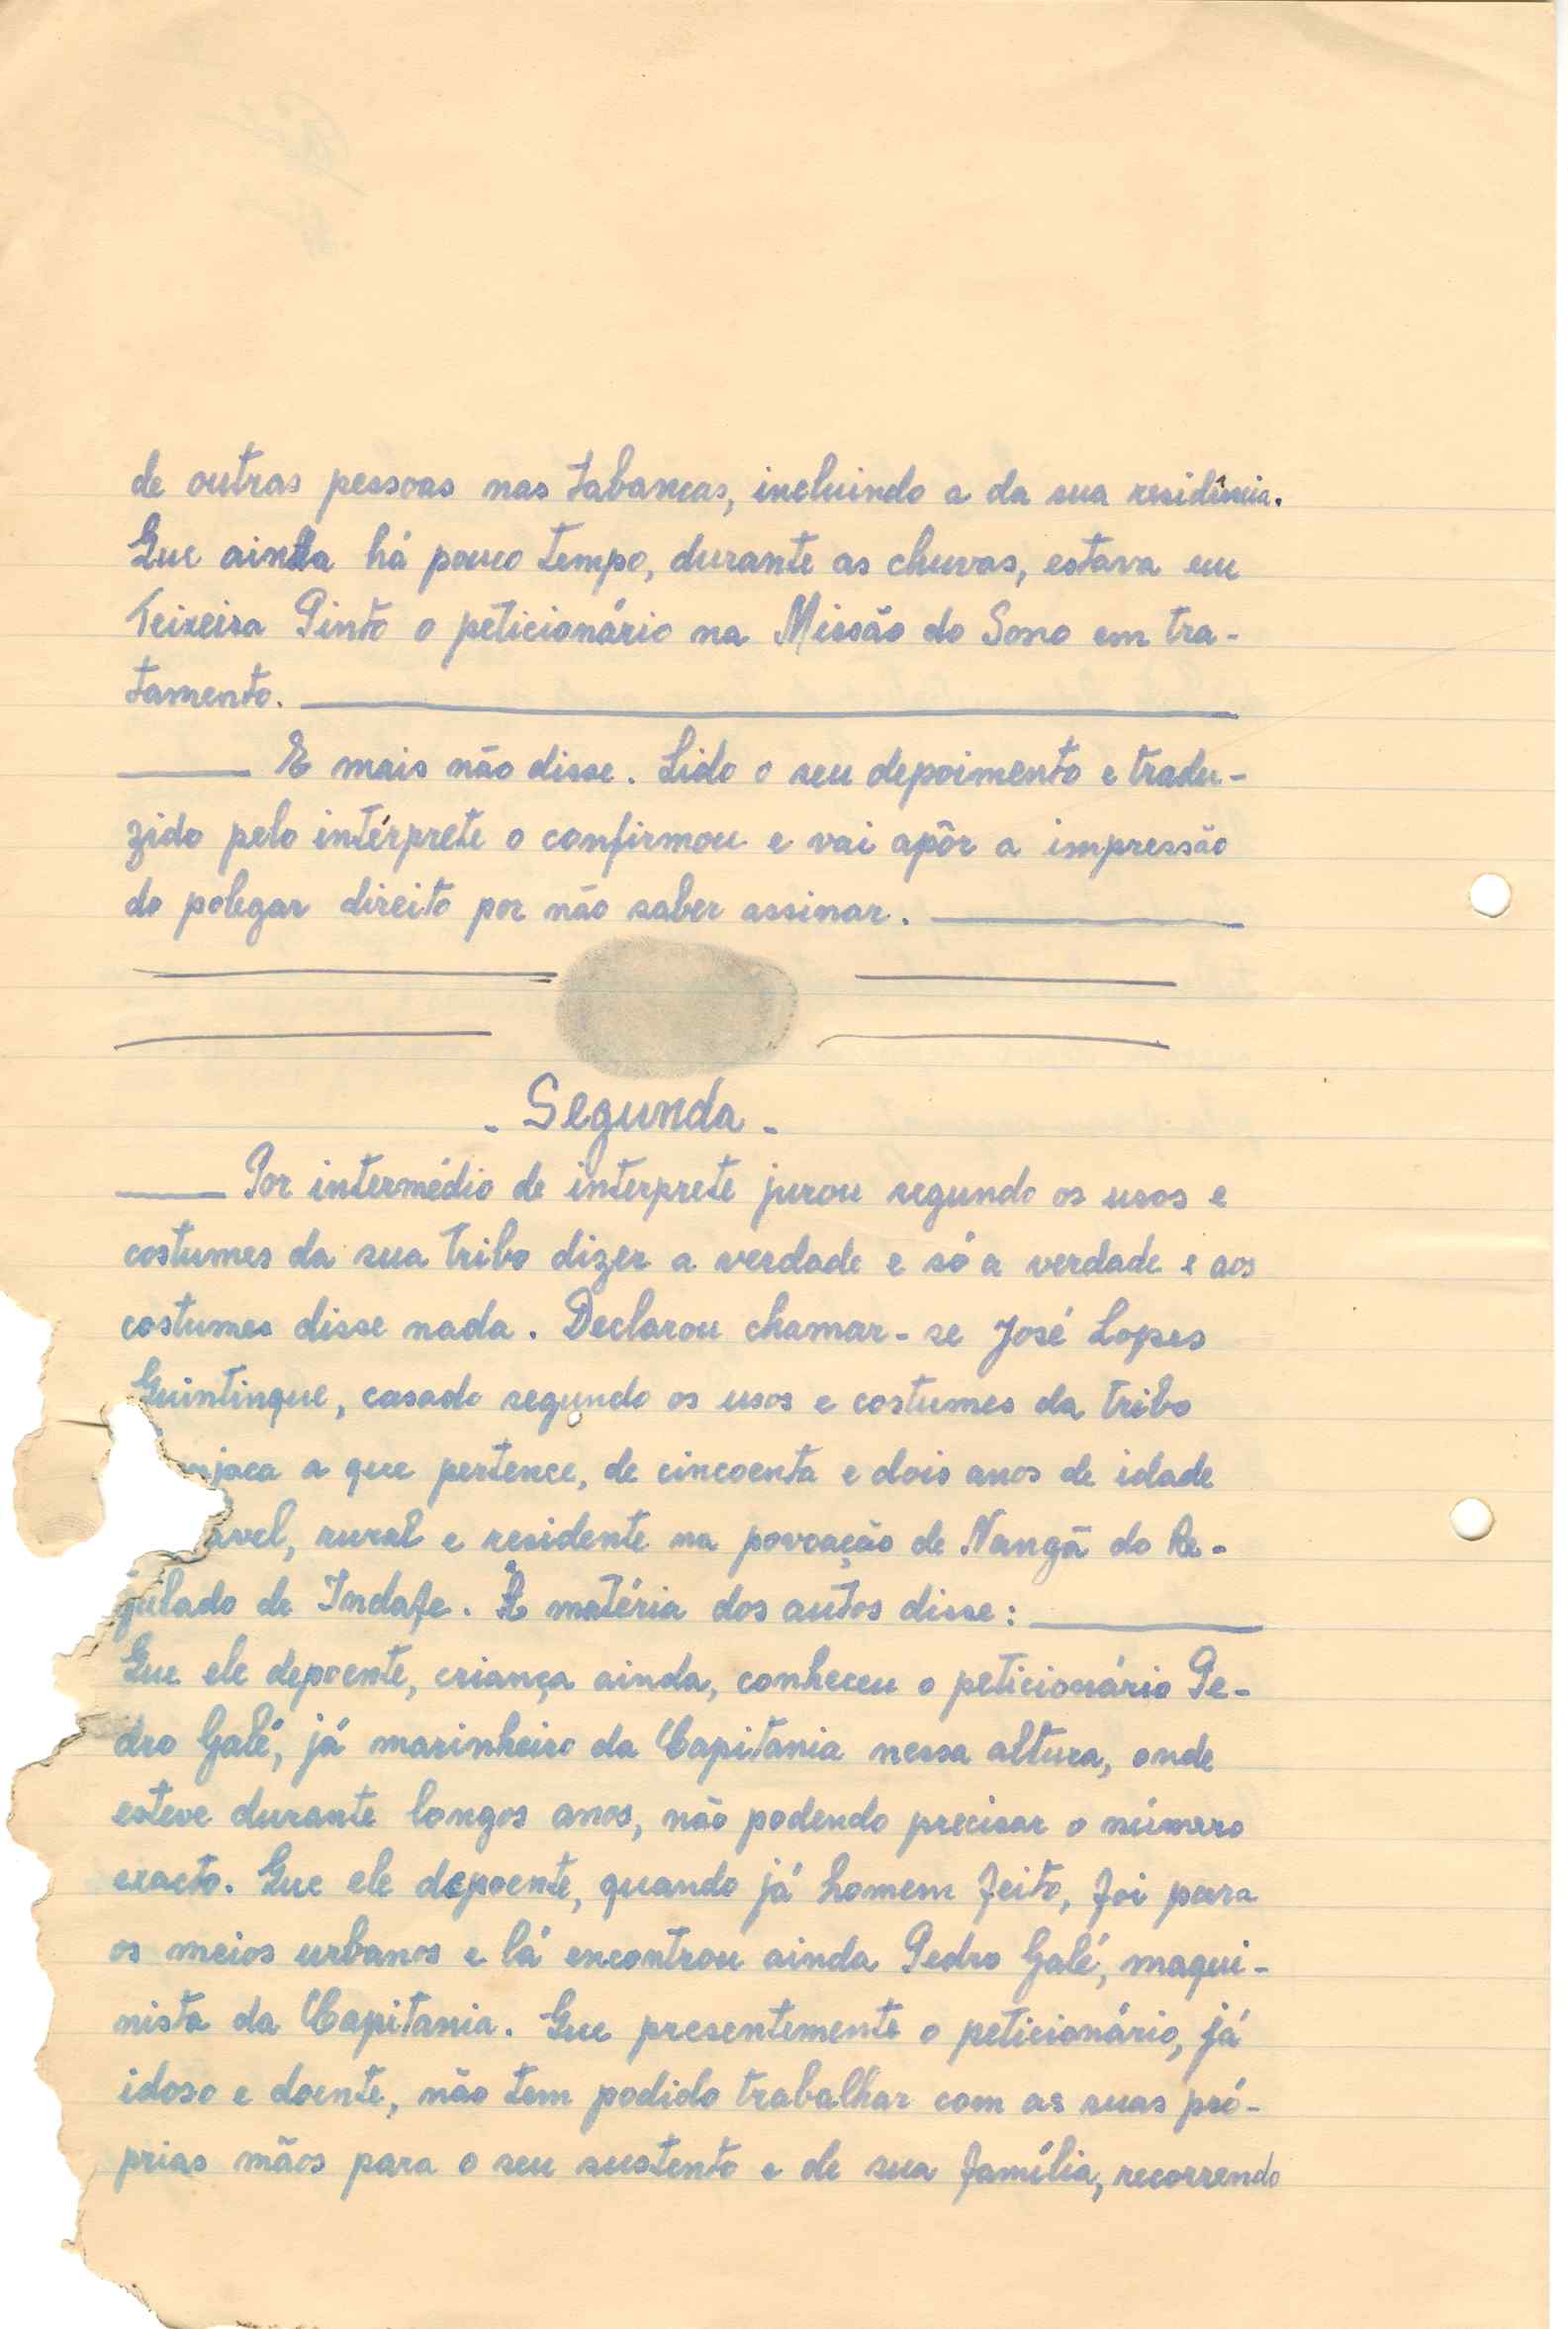 de outras pessoas nas tabancas, incluindo a da sua residência.
Que ainda há pouco tempo, durante as chuvas, estava em
Teixeira Pinto o peticionário na Missão do Sono em tra-
tamento.
E mais não disse. Lido o seu depoimento e tradu-
zido pelo intérprete o confirmou e vai apôr a impressão
do polegar direito por não saber assinar.
- Segunda -
Por intermédio de interprete jurou segundo os usos e
costumes da sua tribo dizer a verdade e só a verdade e aos
costumes disse nada. Declarou chamar-se José Lopes
Quintinque, casado segundo os usos e costumes da tribo
njaca a que pertence, de cincoenta e dois anos de idade
ável, rural e residente na povoação de Nangã do Re-
gulado de Indafe. À matéria dos autos disse:
Que ele depoente, criança ainda, conheceu o peticionário Pe-
dro Galé, já marinheiro da Capitania nessa altura, onde
esteve durante longos anos, não podendo precisar o número
exacto. Que ele depoente, quando já homem feito, foi para
os meios urbanos e lá encontrou ainda Pedro Galé, maqui-
nista da Capitania. Que presentemente o peticionário, já
idoso e doente, não tem podido trabalhar com as suas pró-
prias mãos para o seu sustento e de sua família, recorrendo